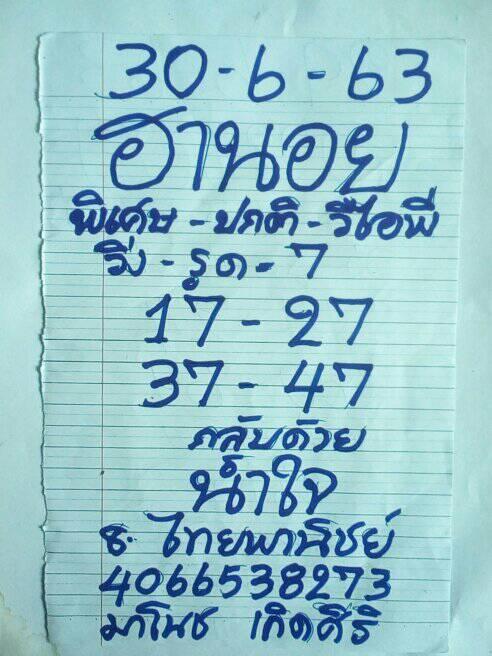 30-6-63
ฮานอย
พิเศษ-ปกติ-วีไอพี
วิ่ง-รูด-7
17-27
37-47
กลับด้วย
น้ำใจ
ธ. ไทยพานิชย์
4066538273
มาโนช เกิดศิริ